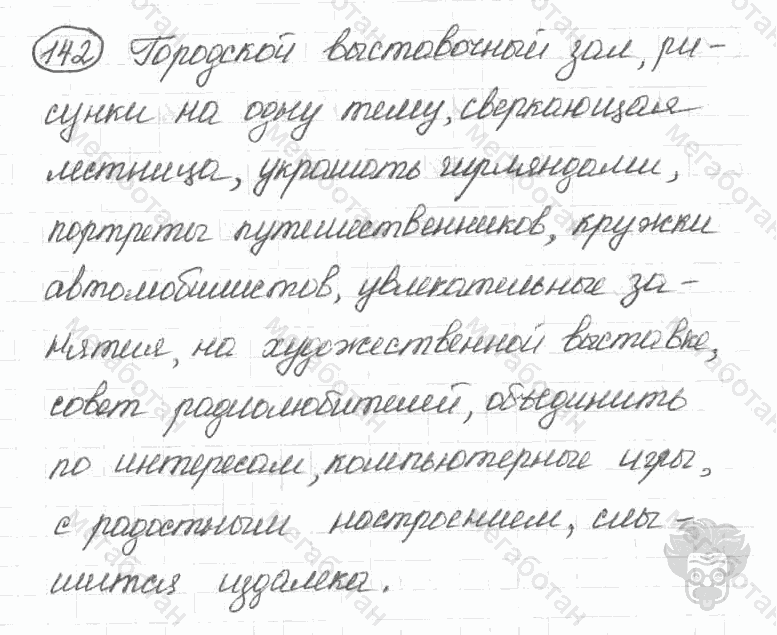 142 Городской выставочный зал, ри-
сунки на одну тему, сверкающая
лестница, украшать гирляндами,
портреты путешественников, кружки
автомобилистов, увлекательные за-
нятия, на художественной выставке,
совет радиолюбителей, объединить
по интересам, компьютерные игры,
с радостным настроением, слы-
шится издалека.